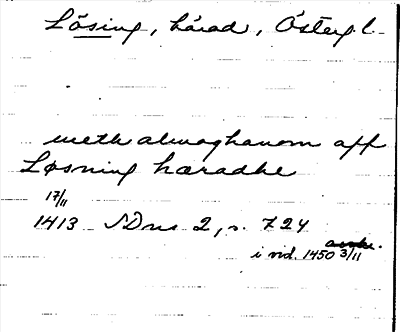 Lösing, härad, Östergl.
meth almoghanom aff
Løsning hæradhe
17/11
1413 SDns 2, s. 724
i vid. 1450 3/11